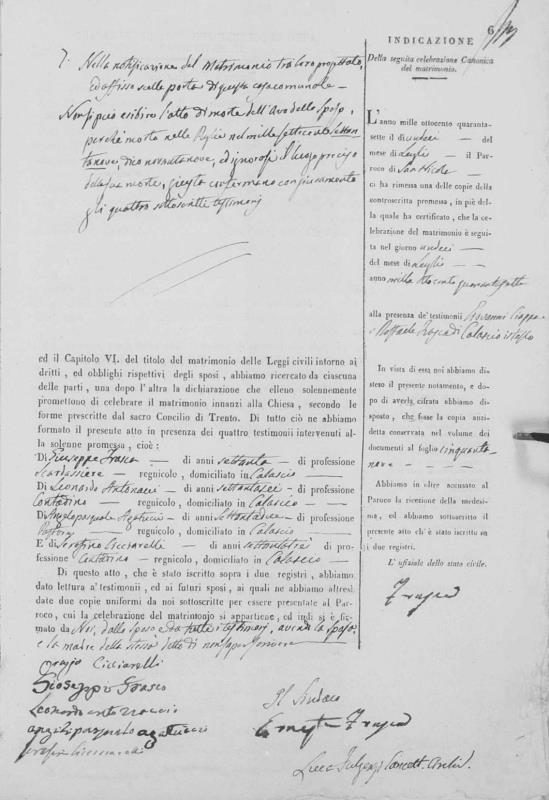 6
7. Nella notificazione del Matrimonio tra loro progettato,
ed affisso nella porta di questa casa comunale —
Non si può esibire l'atto di morte dell'Avo dello sposo,
perchè morto nelle Puglie nel mille settecento settan-
tanove, dico novantanove, ed ignorasi il luogo preciso
della sua morte, giusta confermano con giuramento
gli quattro sottoscritti testimonj
ed il Capitolo VI. del titolo del matrimonio delle Leggi civili intorno ai
dritti, ed obblighi rispettivi degli sposi, abbiamo ricercato da ciascuna
delle parti, una dopo l'altra la dichiarazione che elleno solennemente
promettono di celebrare il matrimonio innanzi alla Chiesa, secondo le
forme prescritte dal sacro Concilio di Trento. Di tutto ciò ne abbiamo
formato il presente atto in presenza dei quattro testimonii intervenuti al-
la solenne promessa, cioè:
Di Giuseppe Frasca — di anni settanta — di professione
Scardassiere — regnicolo, domiciliato in Calascio —
Di Leonardo Antonacci — di anni settantasei — di professione
Contadino — regnicolo, domiciliato in Calascio —
Di Angelo pasquale Agatucci — di anni Settantadue — di professione
Pastore — regnicolo, domiciliato in Calascio —
E di Serafino Cicciarelli — di anni settantatre di pro-
fessione Contadino — regnicolo, domiciliato in Calascio —
Di questo atto, che è stato iscritto sopra i due registri, abbiamo
dato lettura a' testimonii, ed ai futuri sposi, ai quali ne abbiamo altresì
date due copie uniformi da noi sottoscritte per essere presentate al Par-
roco, cui la celebrazione del matrimonio si appartiene, ed indi si è fir-
mato da Noi, dallo sposo e da tutti i testimonj, avendo la sposa,
e la madre dello sposo detto di non saper scrivere
Cicciarelli
Gioseppe Frasco
Leonardo antonaccio
angelo pasqualo agatuccio
Il Sindaco
INDICAZIONE
Della seguita celebrazione Canonica
del matrimonio.
L'anno mille ottocento quaranta-
sette il di undeci — del
mese di Luglio — il Par-
roco di San Nicola —
ci ha rimessa una delle copie della
controscritta promessa, in piè del-
la quale ha certificato, che la ce-
lebrazione del matrimonio è segui-
ta nel giorno undeci —
del mese di Luglio —
anno mille ottocento quarantasette
alla presenza de' testimonii Giovanni
e Raffaele di Calascio istesso
In vista di essa noi abbiamo di-
steso il presente notamento, e do-
po di averla cifrata abbiamo di-
sposto, che fosse la copia anzi-
detta conservata nel volume dei
documenti al foglio cinquanta-
nove —
Abbiamo in oltre accusato al
Paroco la ricezione della medesi-
ma, ed abbiamo sottoscritto il
presente atto ch'è stato iscritto su
i due registri.
L' uffiziale dello stato civile.